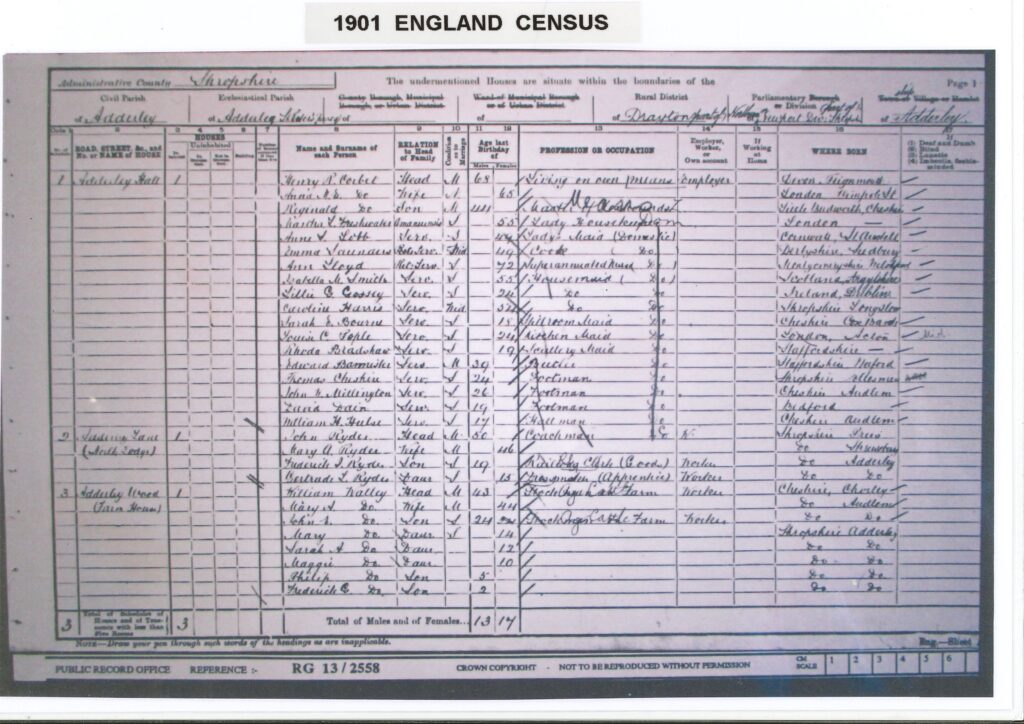 1901 ENGLAND CENSUS
Administrative County Shropshire The undermentioned Houses are situate within the boundaries of the Page 1
Civil Parish Ecclesiastical Parish County Borough, Municipal Borough, or Urban District Ward of Municipal Borough or of Urban District Rural District Parliamentary Borough or Division Town or Village or Hamlet
of Adderley of Adderley of of of Drayton of Newport Div. of Adderley
ROAD, STREET, &c., and No. or NAME of HOUSE HOUSES Uninhabited Name and Surname of each Person RELATION to Head of Family Condition as to Marriage Age last Birthday of Males Females PROFESSION OR OCCUPATION Employer, Worker, or Own account If Working at Home WHERE BORN (1) Deaf and Dumb (2) Blind (3) Lunatic (4) Imbecile, feeble-minded
1 Adderley Hall 1 Henry R. Corbet Head M 68 Living on own means Employer Devon Teignmouth
Anna A.E. Do Wife 65 London
Reginald Do Son M 44 Little Budworth, Cheshire
Martha L. S 55 Lady Housekeeper London
Anne Lobb Serv. Lady's Maid (Domestic) Cornwall,
Emma Saunders Serv. Wid. 49 Cook Do Derbyshire,
Ann Lloyd Serv. S 72 Superannuated Do Montgomeryshire
Isabella M. Smith Serv. S 55 Housemaid Do Scotland,
Lillie G. Serv. S 24 Do Do Ireland, Dublin
Caroline Harris Serv. Wid. Do Do Shropshire Longslow
Sarah E. Bourne Serv. S 18 Stillroom Maid Do Cheshire
Louise C. Serv. S 24 Kitchen Maid Do London, Acton
Rhoda Bradshaw Serv. S 19 Scullery Maid Do Staffordshire —
Edward Serv. M 39 Butler Do Staffordshire
Thomas Cheshire Serv. S 24 Footman Do Shropshire
John W. Millington Serv. S 26 Footman Do Cheshire Audlem
David Dain Serv. S 19 Footman Do Bedford
William H. Hulse Serv. S 17 Hall man Do Cheshire Audlem
2 Adderley (North Lodge) 1 John Ryder Head M 50 Coachman Do Shropshire Prees
Mary A. Ryder Wife M 46 Do
Frederick Ryder Son S 19 Railway Clerk (Goods) Worker Do Adderley
Gertrude L. Ryder Daur S 15 Dressmaker (Apprentice) Worker Do Do
3 Adderley Wood (Farm House) 1 William Head M 43 Farm Worker Cheshire, Chorley
Mary A. Do. Wife M 44 Do Audlem
John Do. Son S 24 Farm Worker Do Do
Mary Do. Daur. S 14 Shropshire Adderley
Sarah A. Do Daur. 12 Do Do
Maggie Do Daur. 10 Do Do
Philip Do Son 5 Do Do
Frederick E. Do. Son 2 Do Do
3 Total of Schedules of Houses and of Tenements with less than Five Rooms 3 Total of Males and of Females... 13 17
NOTE—Draw your pen through such words of the headings as are inapplicable. Eng.—Sheet
PUBLIC RECORD OFFICE REFERENCE :- RG 13 / 2558 CROWN COPYRIGHT - NOT TO BE REPRODUCED WITHOUT PERMISSION CM SCALE 1 2 3 4 5 6